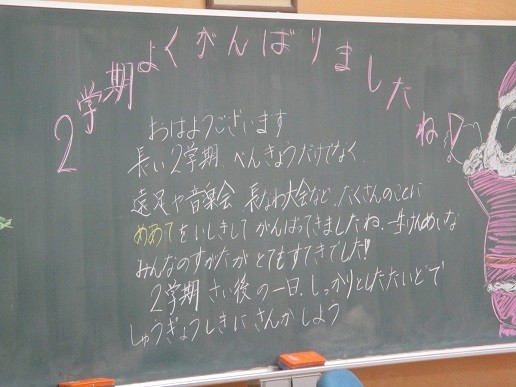 2学期よくがんばりましたね!
おはようございます
長い2学期、べんきょうだけでなく、
遠足や音楽会、長なわ大会など、たくさんのことに
めあてをいしきしてがんばってきましたね。一生けんめいな
みんなのすがたがとてもすてきでした!
2学期さい後の一日、しっかりとしたたいどで
しゅうぎょうしきにさんかしよう